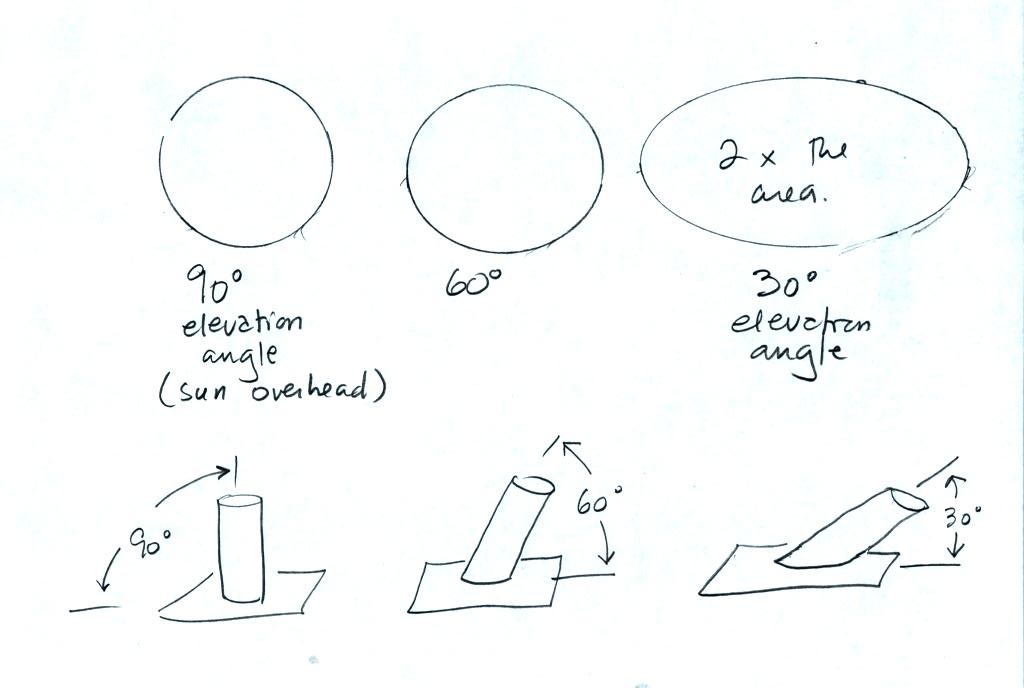 2 x the
area.
90°
elevation
angle
(sun overhead)
60°
30°
elevation
angle
90°
60°
30°